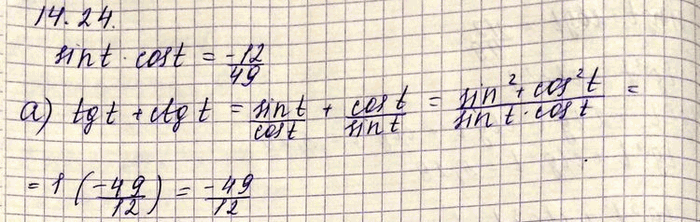 14.24.
sin t · cos t = -12/49
а) tg t + ctg t = sin t/cos t + cos t/sin t = sin² + cos² t/sin t · cos t =
= 1 (-49/12) = -49/12